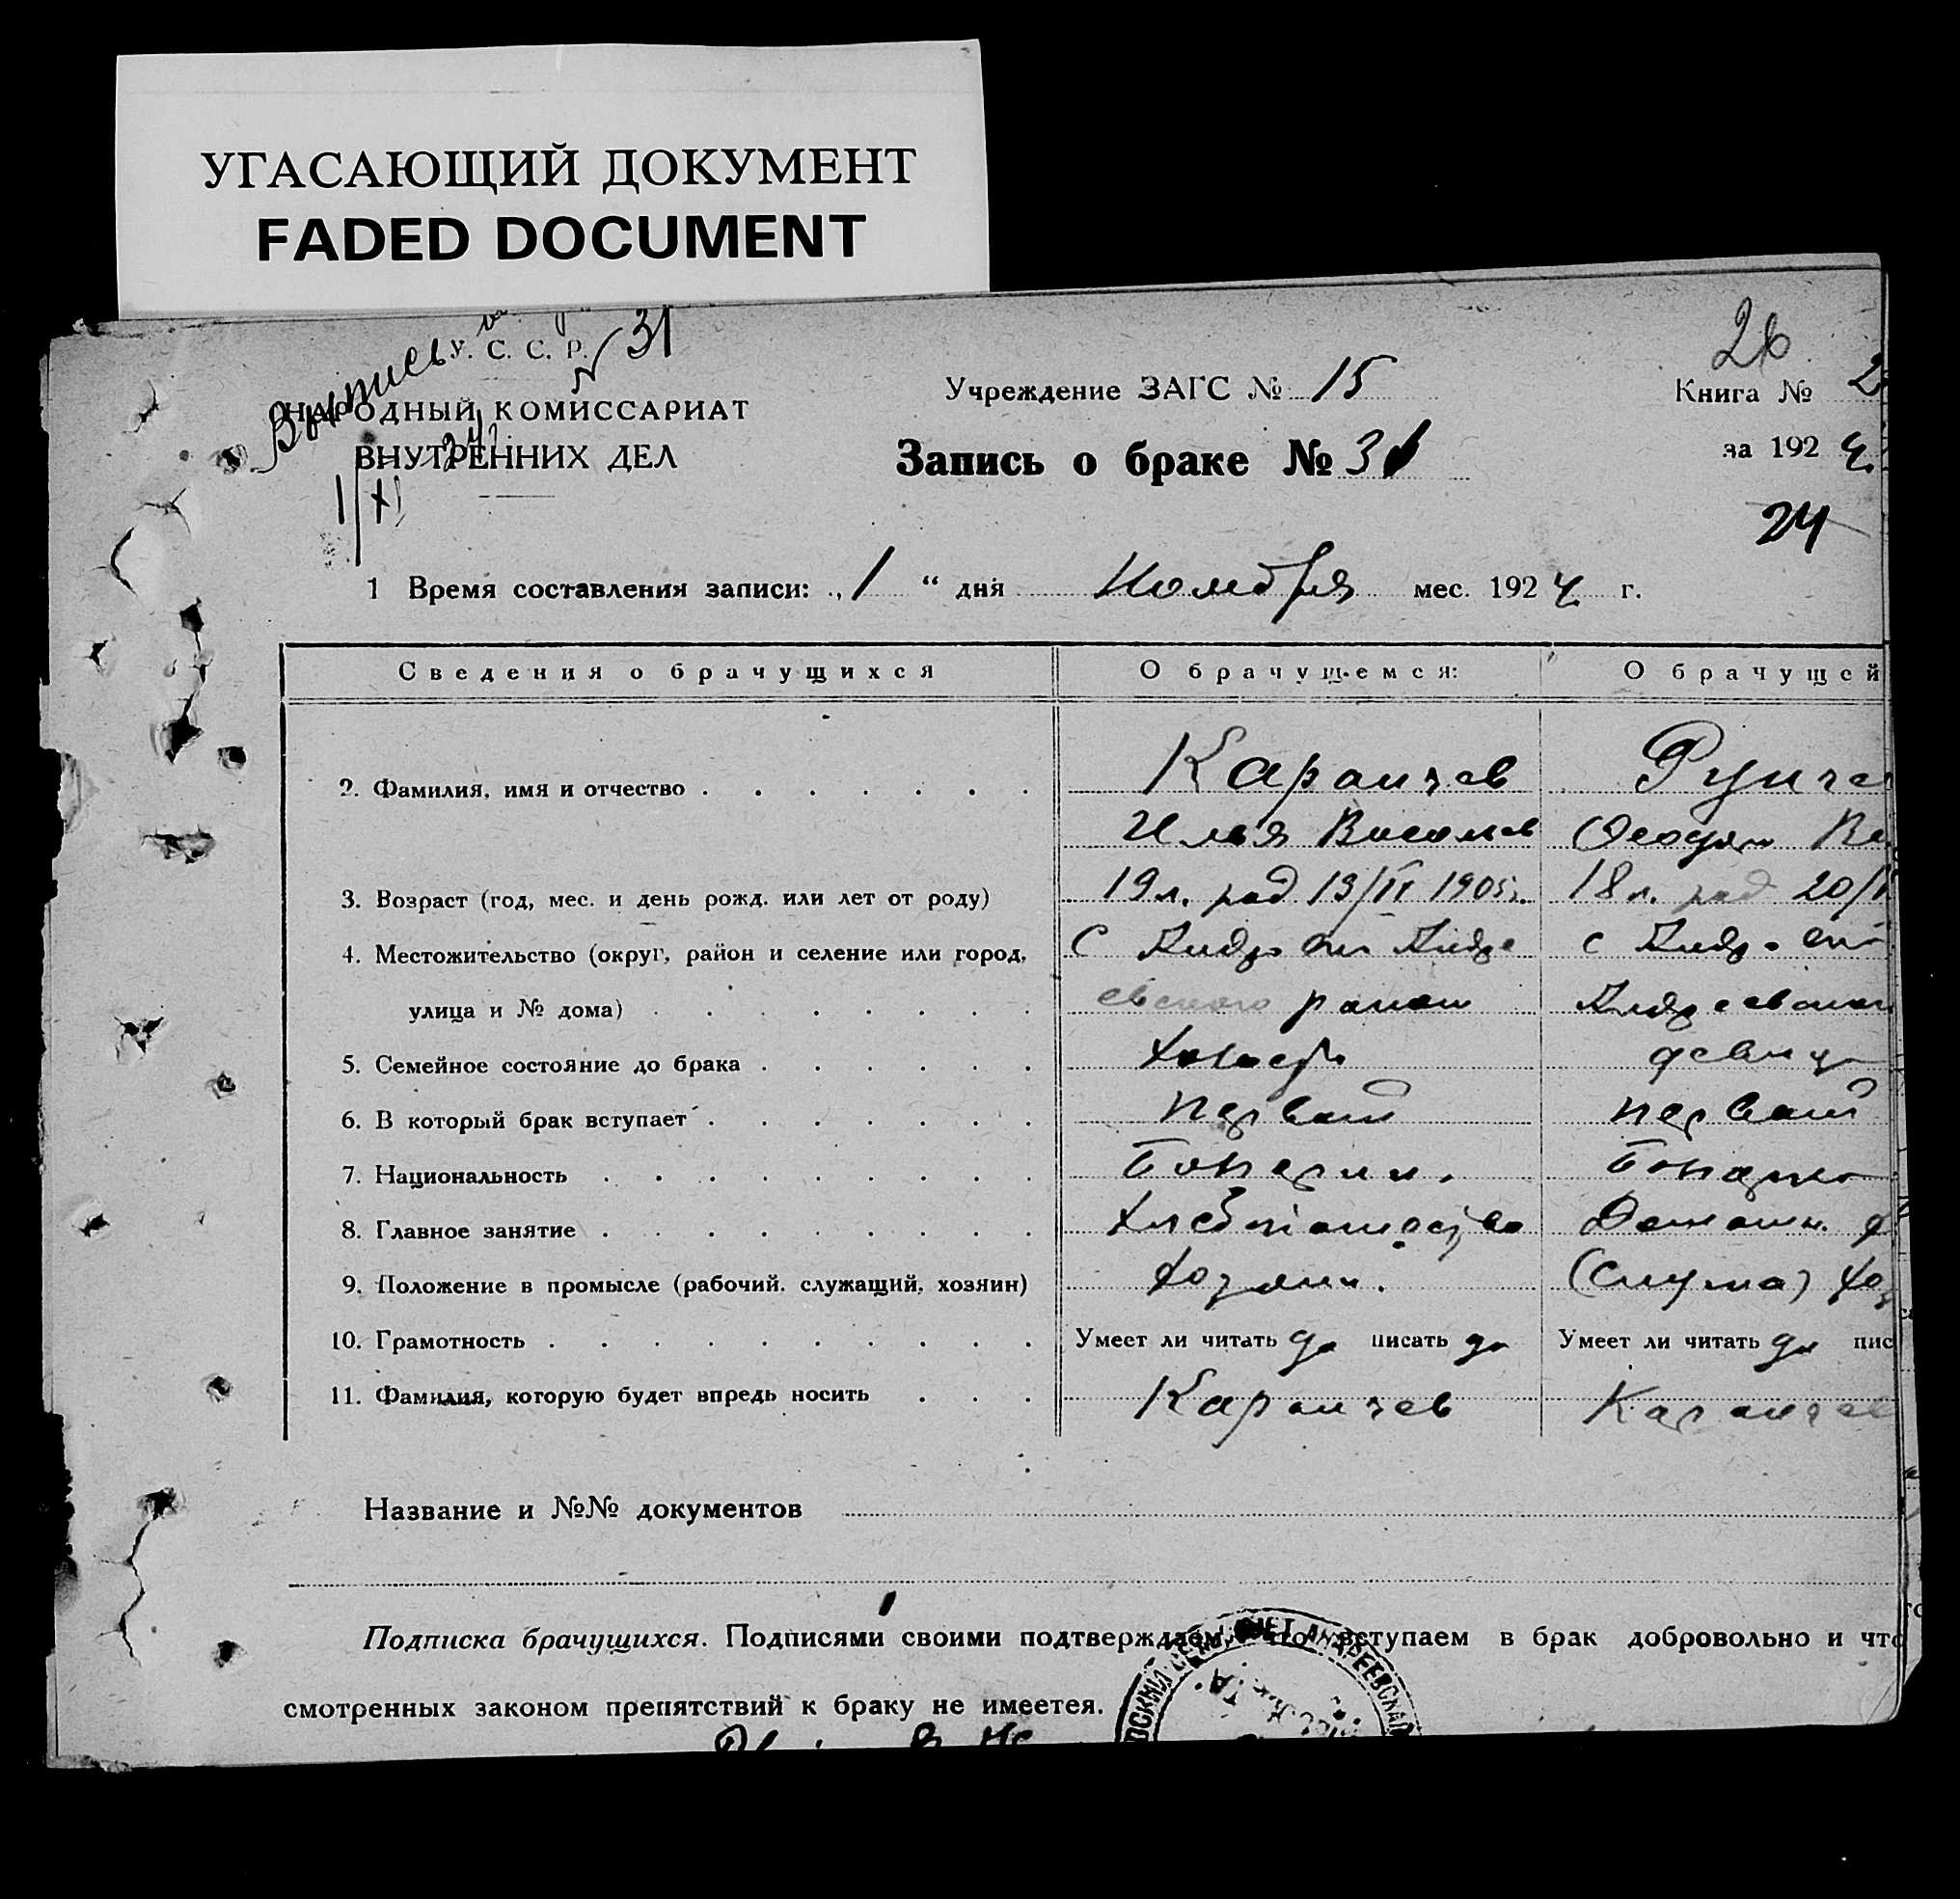 УГАСАЮЩИЙ ДОКУМЕНТ
FADED DOCUMENT
Выпись
31
26
У. С. С. Р.
НАРОДНЫЙ КОМИССАРИАТ
ВНУТРЕННИХ ДЕЛ
1/XI
Учреждение ЗАГС № 15
Книга № 2
Запись о браке № 31
за 1924
24
1 Время составления записи: „1“ дня Ноября мес. 1924 г.
Сведения о брачущихся О брачущемся: О брачущей
2. Фамилия, имя и отчество Карангев Рунге
Илья Васильев Феодора Ва
3. Возраст (год, мес. и день рожд. или лет от роду) 19 л. род 19/IV 1905 г. 18 л. род 20/
4. Местожительство (округ, район и селение или город, С Андр Андре с Андр
улица и № дома) евского район Андреевского
5. Семейное состояние до брака холост девица
6. В который брак вступает первый первый
7. Национальность Болгарин. Болгарка
8. Главное занятие хлебопашество Домашн.
9. Положение в промысле (рабочий, служащий, хозяин) хозяин. хоз
10. Грамотность Умеет ли читать да писать да Умеет ли читать да пис
11. Фамилия, которую будет впредь носить Карангев Карангев
Название и №№ документов
Подписка брачущихся. Подписями своими подтверждаем, что вступаем в брак добровольно и что
смотренных законом препятствий к браку не имеетея.